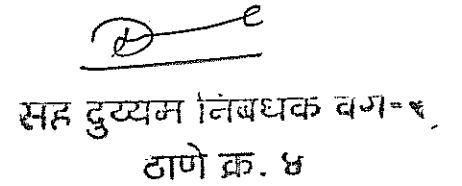 सह दुय्यम निबंधक वर्ग-२,
ठाणे क्र. ४